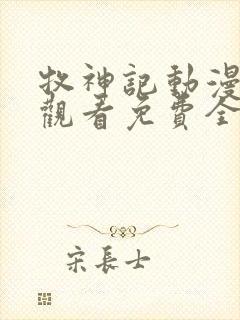 牧神記動漫
觀看免費全
宋長士